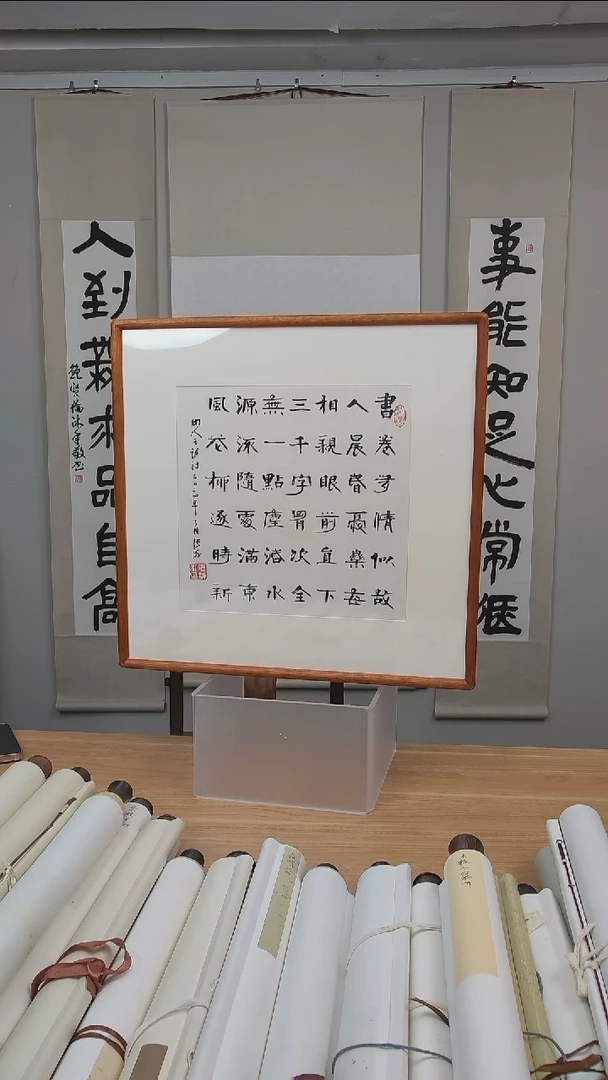 事能知足心常愜
人到無求品自高
書卷多情似故
人晨昏憂樂每
相親眼前直下
三千字胷次全
無一點塵活水
源流隨處滿東
風花柳逐時新